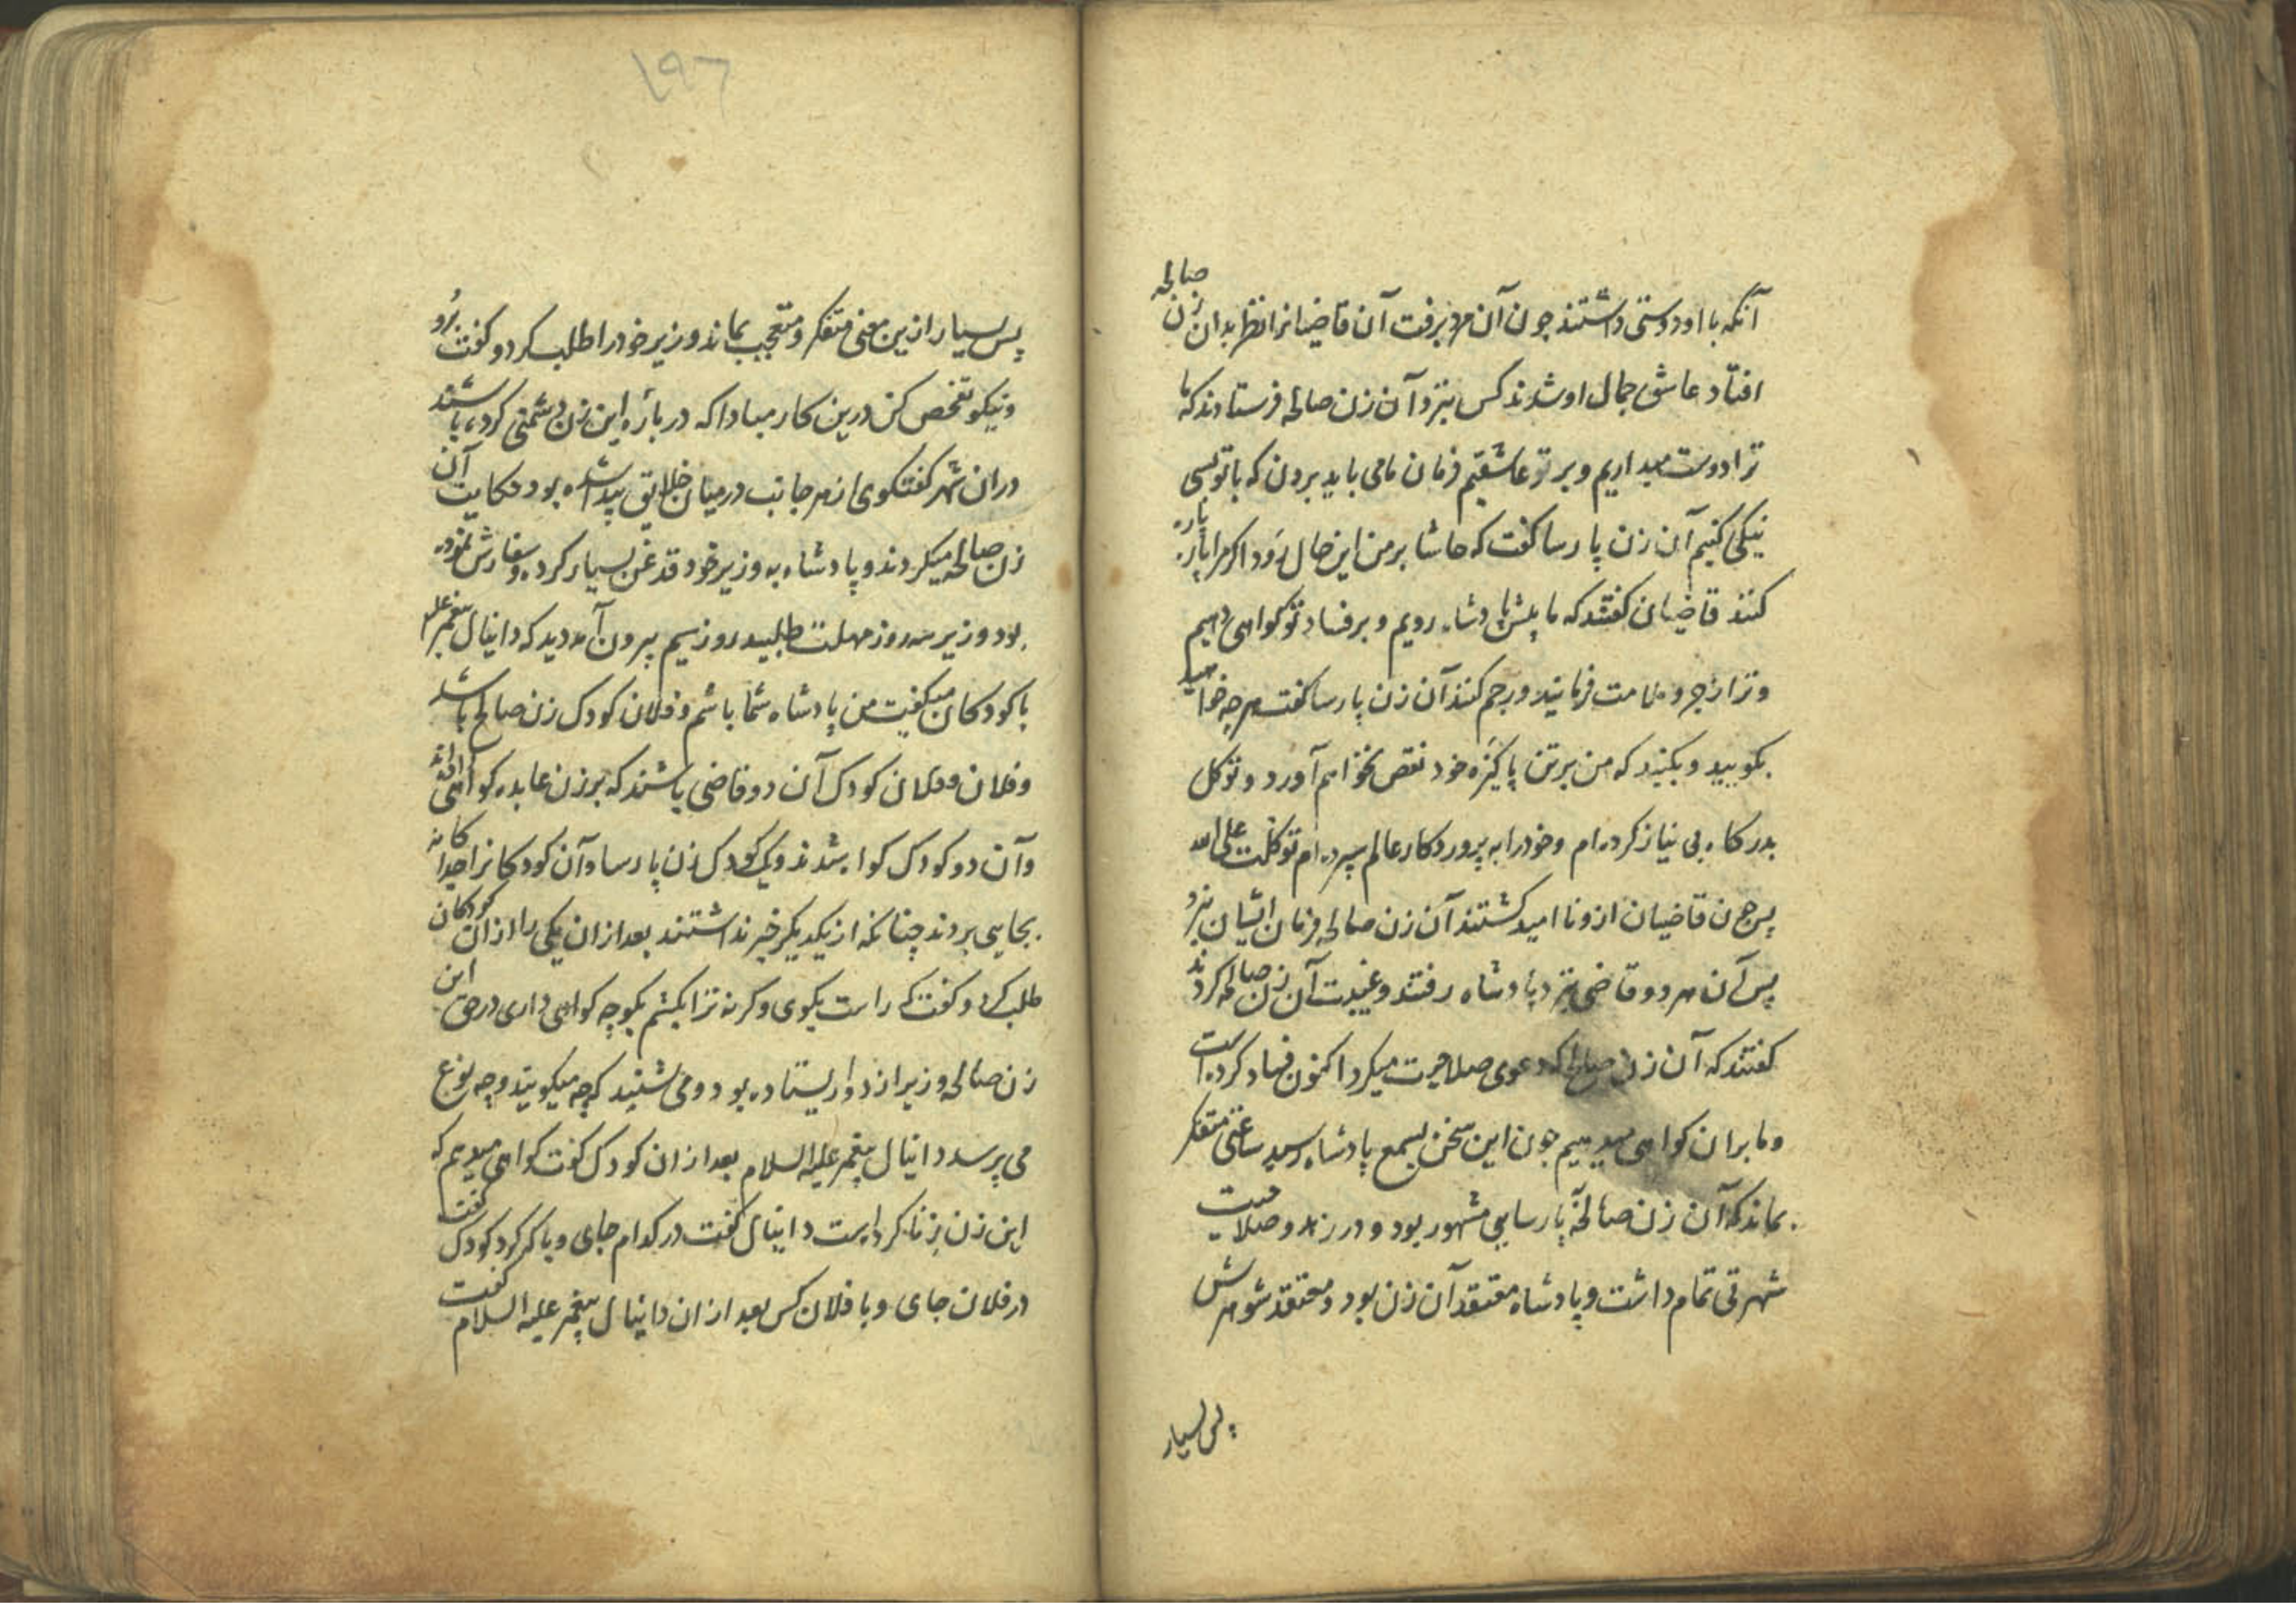 آنکه با او دوستی داشتند چون آن مرد برفت آن قاضیانرا نظر بدان زن صالحه
افتاد عاشق جمال او شدند کس بنزد آن زن صالحه فرستادند که ما
ترا دوست میداریم و بر تو عاشقیم فرمان ما می باید بردن که با تو بسی
نیکی کنیم آن زن پارسا گفت که حاشا بر من این حال رود اگر مرا پاره پاره
کنند قاضیان گفتند که ما پیش پادشاه رویم و بر فساد تو کواهی دهیم
و ترا زجر و ملامت فرمایند و رجم کنند آن زن پارسا گفت هرچه خواهید
بگویید و بکنید که من بر تن پاکیزه خود نقص نخواهم آورد و توکل
بدرگاه بی نیاز کرده ام و خود را به پروردگار عالم سپرده ام توکلت علی الله
پس چون قاضیان ازو ناامید گشتند آن زن صالحه فرمان ایشان نبرد
پس آن هر دو قاضی بنزد پادشاه رفتند و غیبت آن زن صالحه کردند
گفتند که آن زن صالحه که دعوی صلاحیت میکرد اکنون فساد کرده است
و ما بران کواهی میدهیم چون این سخن بسمع پادشاه رسید ساعتی متفکر
بماند که آن زن صالحه پارسایی مشهور بود و در زهد و صلاحیت
شهرتی تمام داشت و پادشاه معتقد آن زن بود و معتقد شوهرش
پس بسیار
۱۹۶
پس بسیار ازین معنی متفکر و متعجب بماند وزیر خود را طلب کرد و گفت برو
و نیکو تفحص کن درین کار مبادا که درباره این زن دشمنی کرده باشند
دران شهر گفتگوی از هر جانب در میان خلایق پیدا شده بود و حکایت آن
زن صالحه میکردند و پادشاه به وزیر خود قدغن بسیار کرده و سفارش نموده
بود وزیر سه روز مهلت طلبید روز سیم بیرون آمد دید که دانیال پیغمبر علیه
با کودکان میگفت من پادشاه شما باشم و فلان کودک زن صالحه باشد
و فلان و فلان کودک آن دو قاضی باشند که بر زن عابده کواهی داده اند
و آن دو کودک کواه شدند و یک کودک زن پارسا و آن کودکانرا جداگانه
بجایی بردند چنانکه از یکدیگر خبر نداشتند بعد ازان یکی را ازان کودکان
طلب کرد و گفت که راست بگوی وگرنه ترا بکشم بگو چه کواهی داری در حق این
زن صالحه وزیر از دور ایستاده بود و می شنید که چه میگویند و چه نوع
می پرسد دانیال پیغمبر علیه السلام بعد ازان کودک گفت کواهی میدهم که
این زن زنا کرده است دانیال گفت در کدام جای و با که کرد کودک گفت
در فلان جای و با فلان کس بعد ازان دانیال پیغمبر علیه السلام گفت